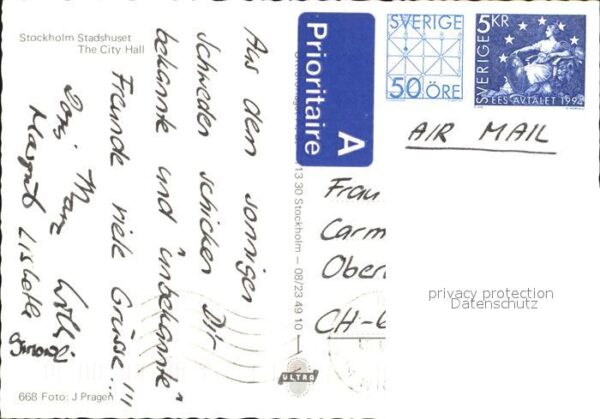 Stockholm Stadshuset
The City Hall
Aus dem sonnigen
Schweden schicken Dir
bekannte und "unbekannte"
Freunde viele Grüsse...!!!
Doris Marc Willi
Margrit Lisbeth
Simone
668 Foto: J Pragen
13 30 Stockholm – 08/23 49 10
ULTRA
Prioritaire
A
SVERIGE
50 ÖRE
5 KR
SVERIGE
EES AVTALET 1994
AIR MAIL
Frau
Carm
Ober
CH-6
privacy protection
Datenschutz